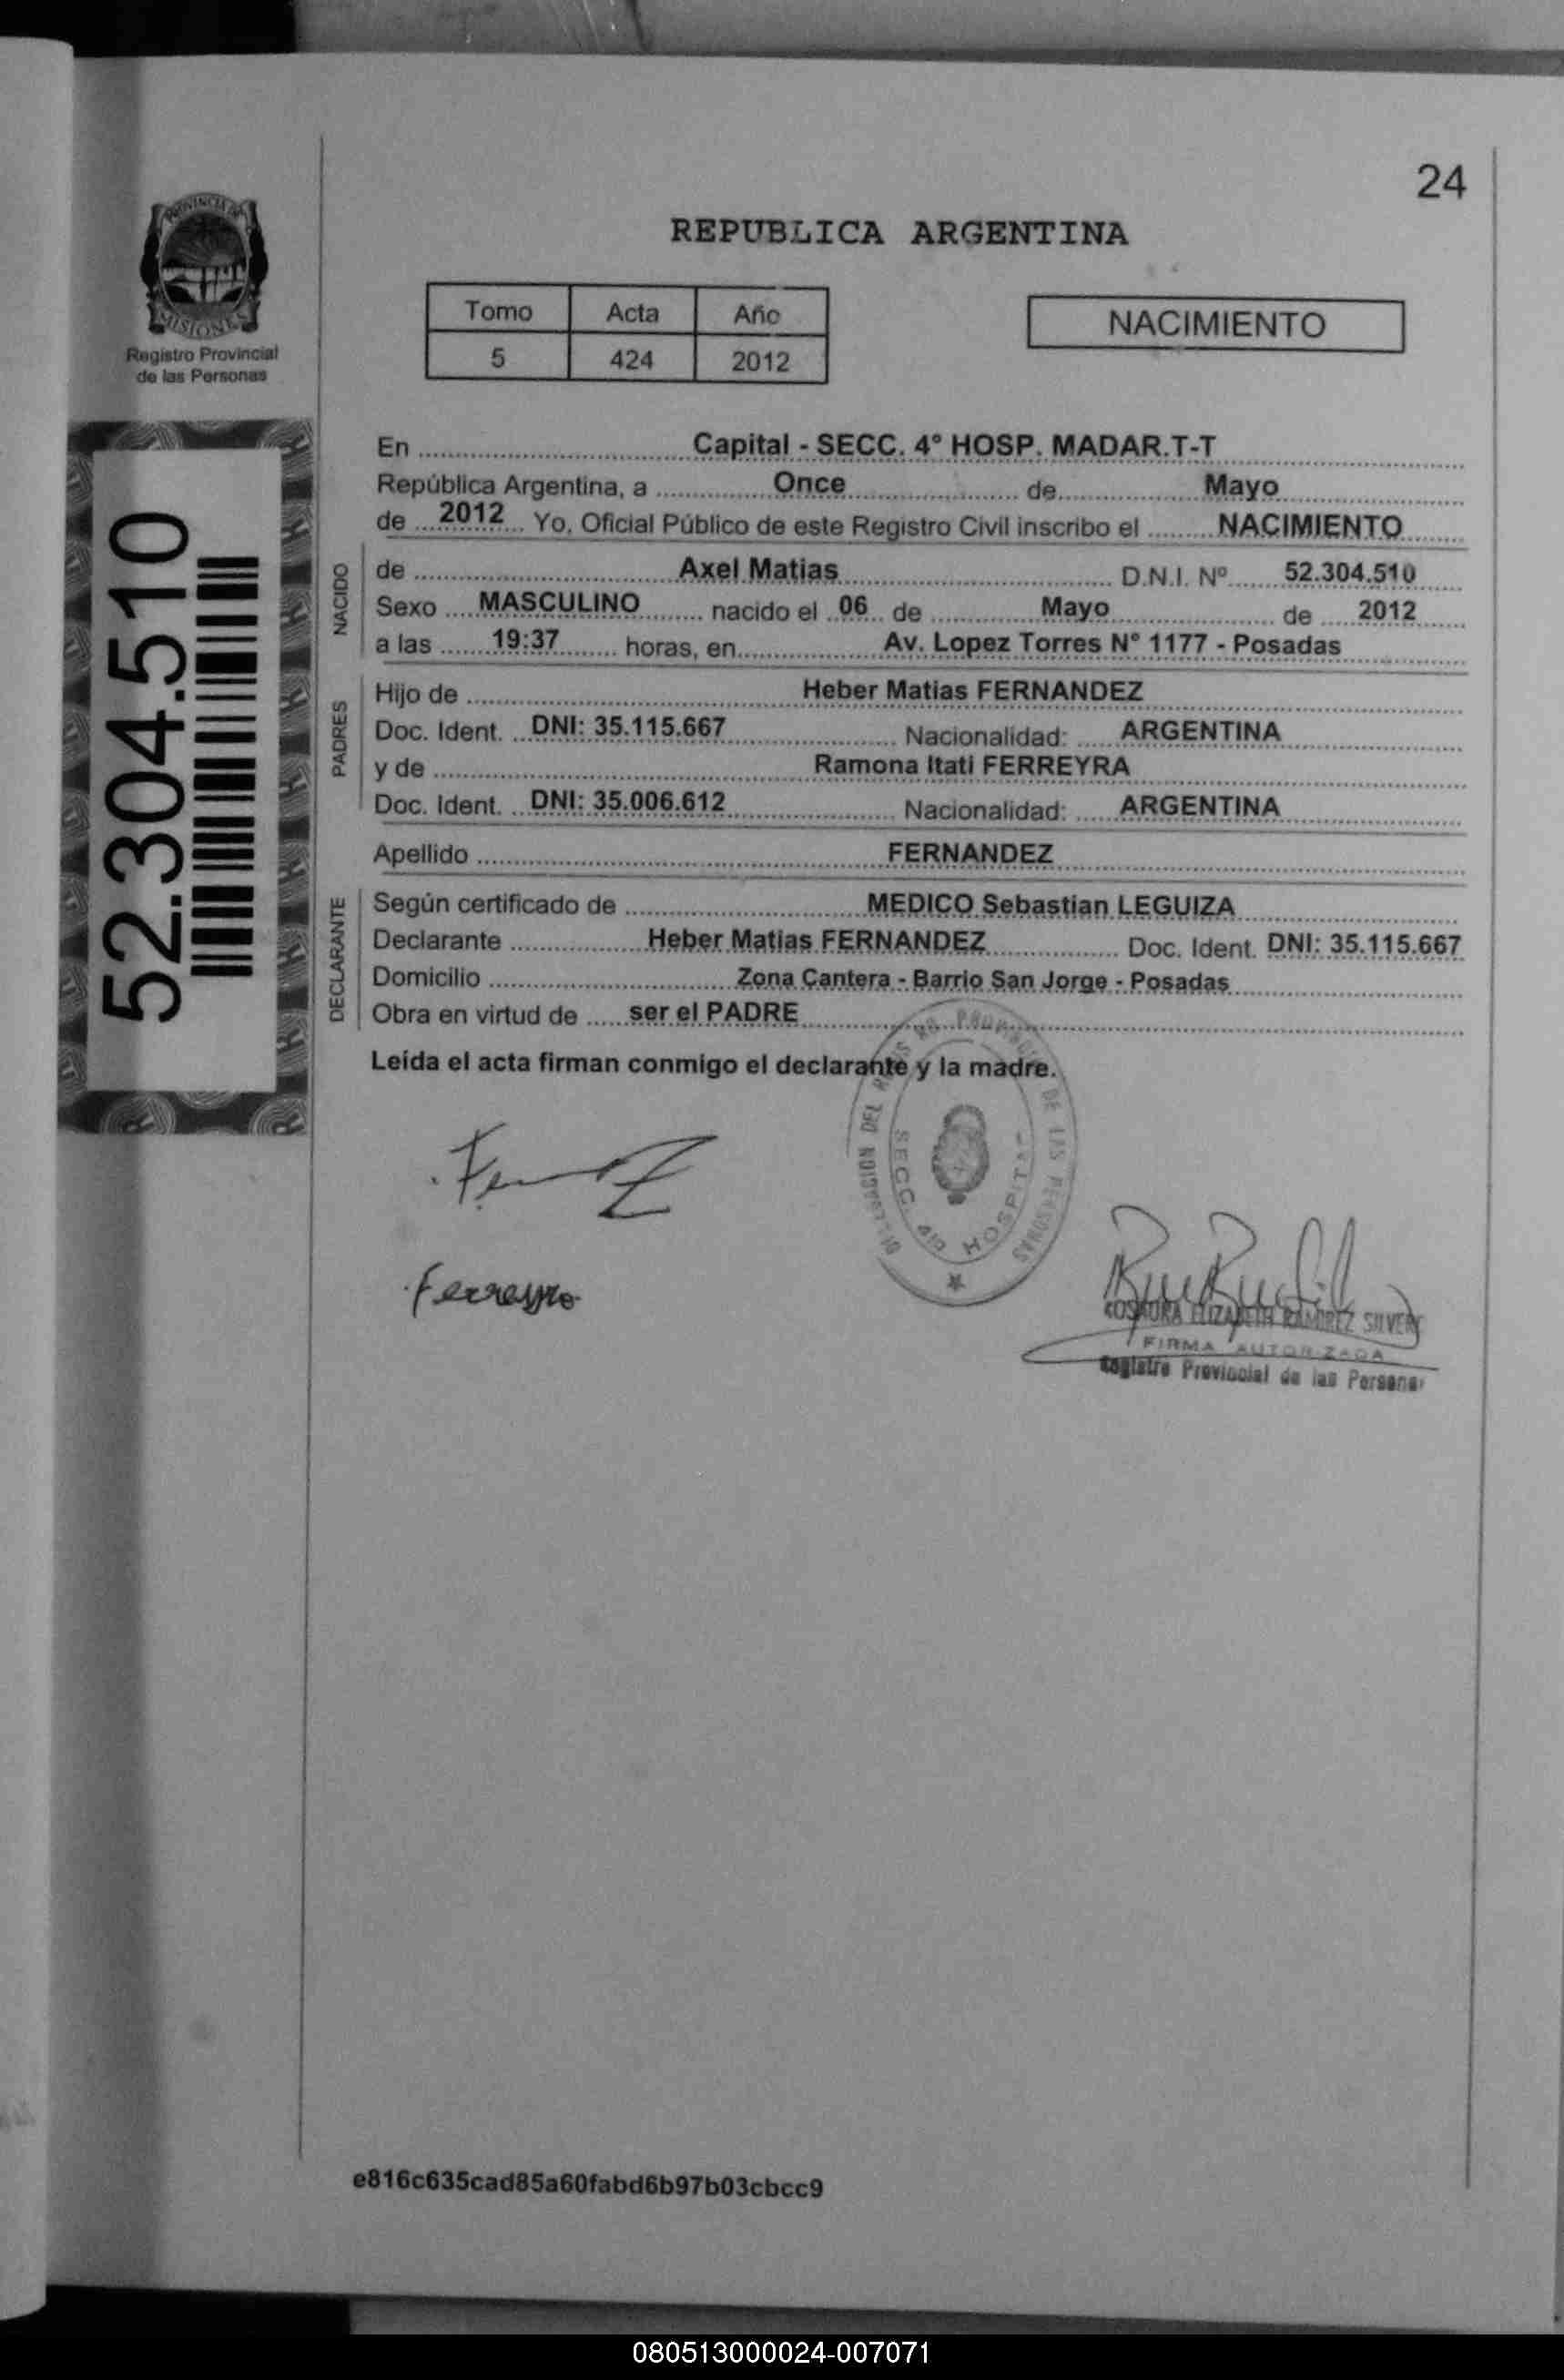 24
PROVINCIA DE
MISIONES
Registro Provincial
de las Personas
REPUBLICA ARGENTINA
Tomo Acta Año
5 424 2012
NACIMIENTO
52.304.510
En Capital - SECC. 4° HOSP. MADAR.T-T
República Argentina, a Once de Mayo
de 2012 Yo, Oficial Público de este Registro Civil inscribo el NACIMIENTO
NACIDO
de Axel Matias D.N.I. Nº 52.304.510
Sexo MASCULINO nacido el 06 de Mayo de 2012
a las 19:37 horas, en Av. Lopez Torres N° 1177 - Posadas
PADRES
Hijo de Heber Matias FERNANDEZ
Doc. Ident. DNI: 35.115.667 Nacionalidad: ARGENTINA
y de Ramona Itati FERREYRA
Doc. Ident. DNI: 35.006.612 Nacionalidad: ARGENTINA
Apellido FERNANDEZ
DECLARANTE
Según certificado de MEDICO Sebastian LEGUIZA
Declarante Heber Matias FERNANDEZ Doc. Ident. DNI: 35.115.667
Domicilio Zona Cantera - Barrio San Jorge - Posadas
Obra en virtud de ser el PADRE
Leída el acta firman conmigo el declarante y la madre.
DE LAS PERSONAS
SECC. HOSPITAL
Ferreyra
ELIZABETH RAMIREZ
FIRMA AUTORIZADA
Registro Provincial de las Personas
e816c635cad85a60fabd6b97b03cbcc9
080513000024-007071